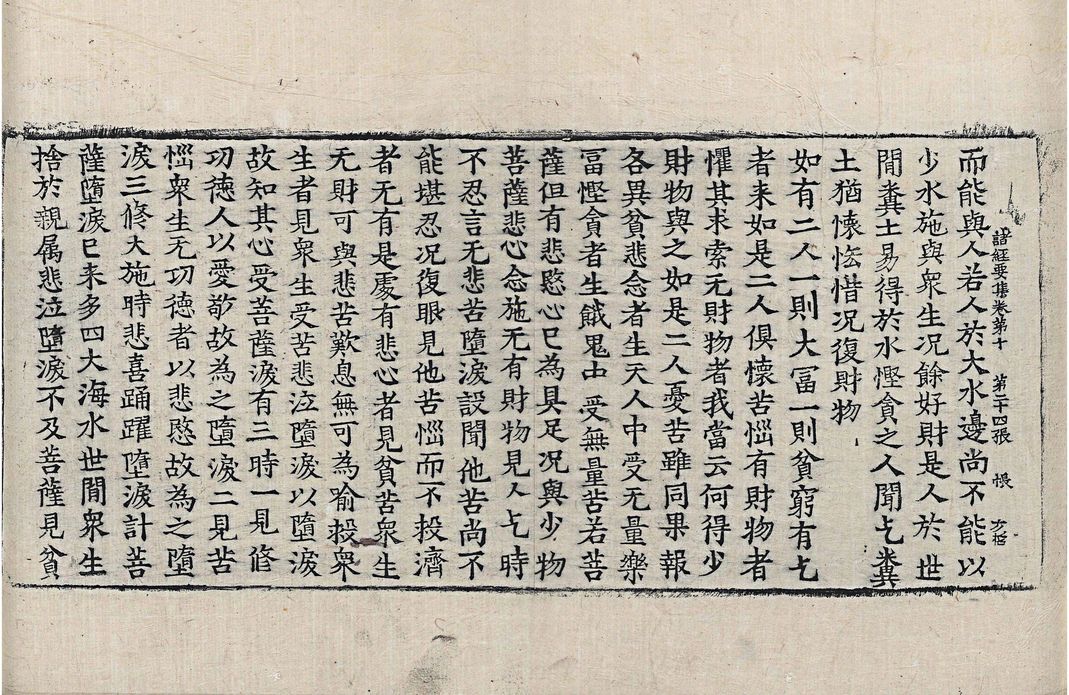 諸經要集卷第十 第二十四張 帳
而能與人若人於大水邊尚不能以
少水施與衆生况餘好財是人於世
閒糞土易得於水慳貪之人聞乞糞
土猶懷恡惜况復財物
如有二人一則大冨一則貧窮有乞
者来如是二人俱懷苦惱有財物者
懼其求索无財物者我當云何得少
財物與之如是二人憂苦雖同果報
各異貧悲念者生天人中受无量樂
冨慳貪者生餓鬼中受無量苦若菩
薩但有悲愍心已為具足况與少物
菩薩悲心念施无有財物見人乞時
不忍言无悲苦墮淚設聞他苦尚不
能堪忍况復眼見他苦惱而不投濟
者无有是處有悲心者見貧苦衆生
无財可與悲苦歎息無可為喻投衆
生者見衆生受苦悲泣墮淚以墮淚
故知其心受菩薩淚有三時一見修
功徳人以愛敬故為之墮淚二見苦
惱衆生无功德者以悲愍故為之墮
淚三修大施時悲喜踊躍墮淚計菩
薩墮淚已来多四大海水世閒衆生
捨於親属悲泣墮淚不及菩薩見貧